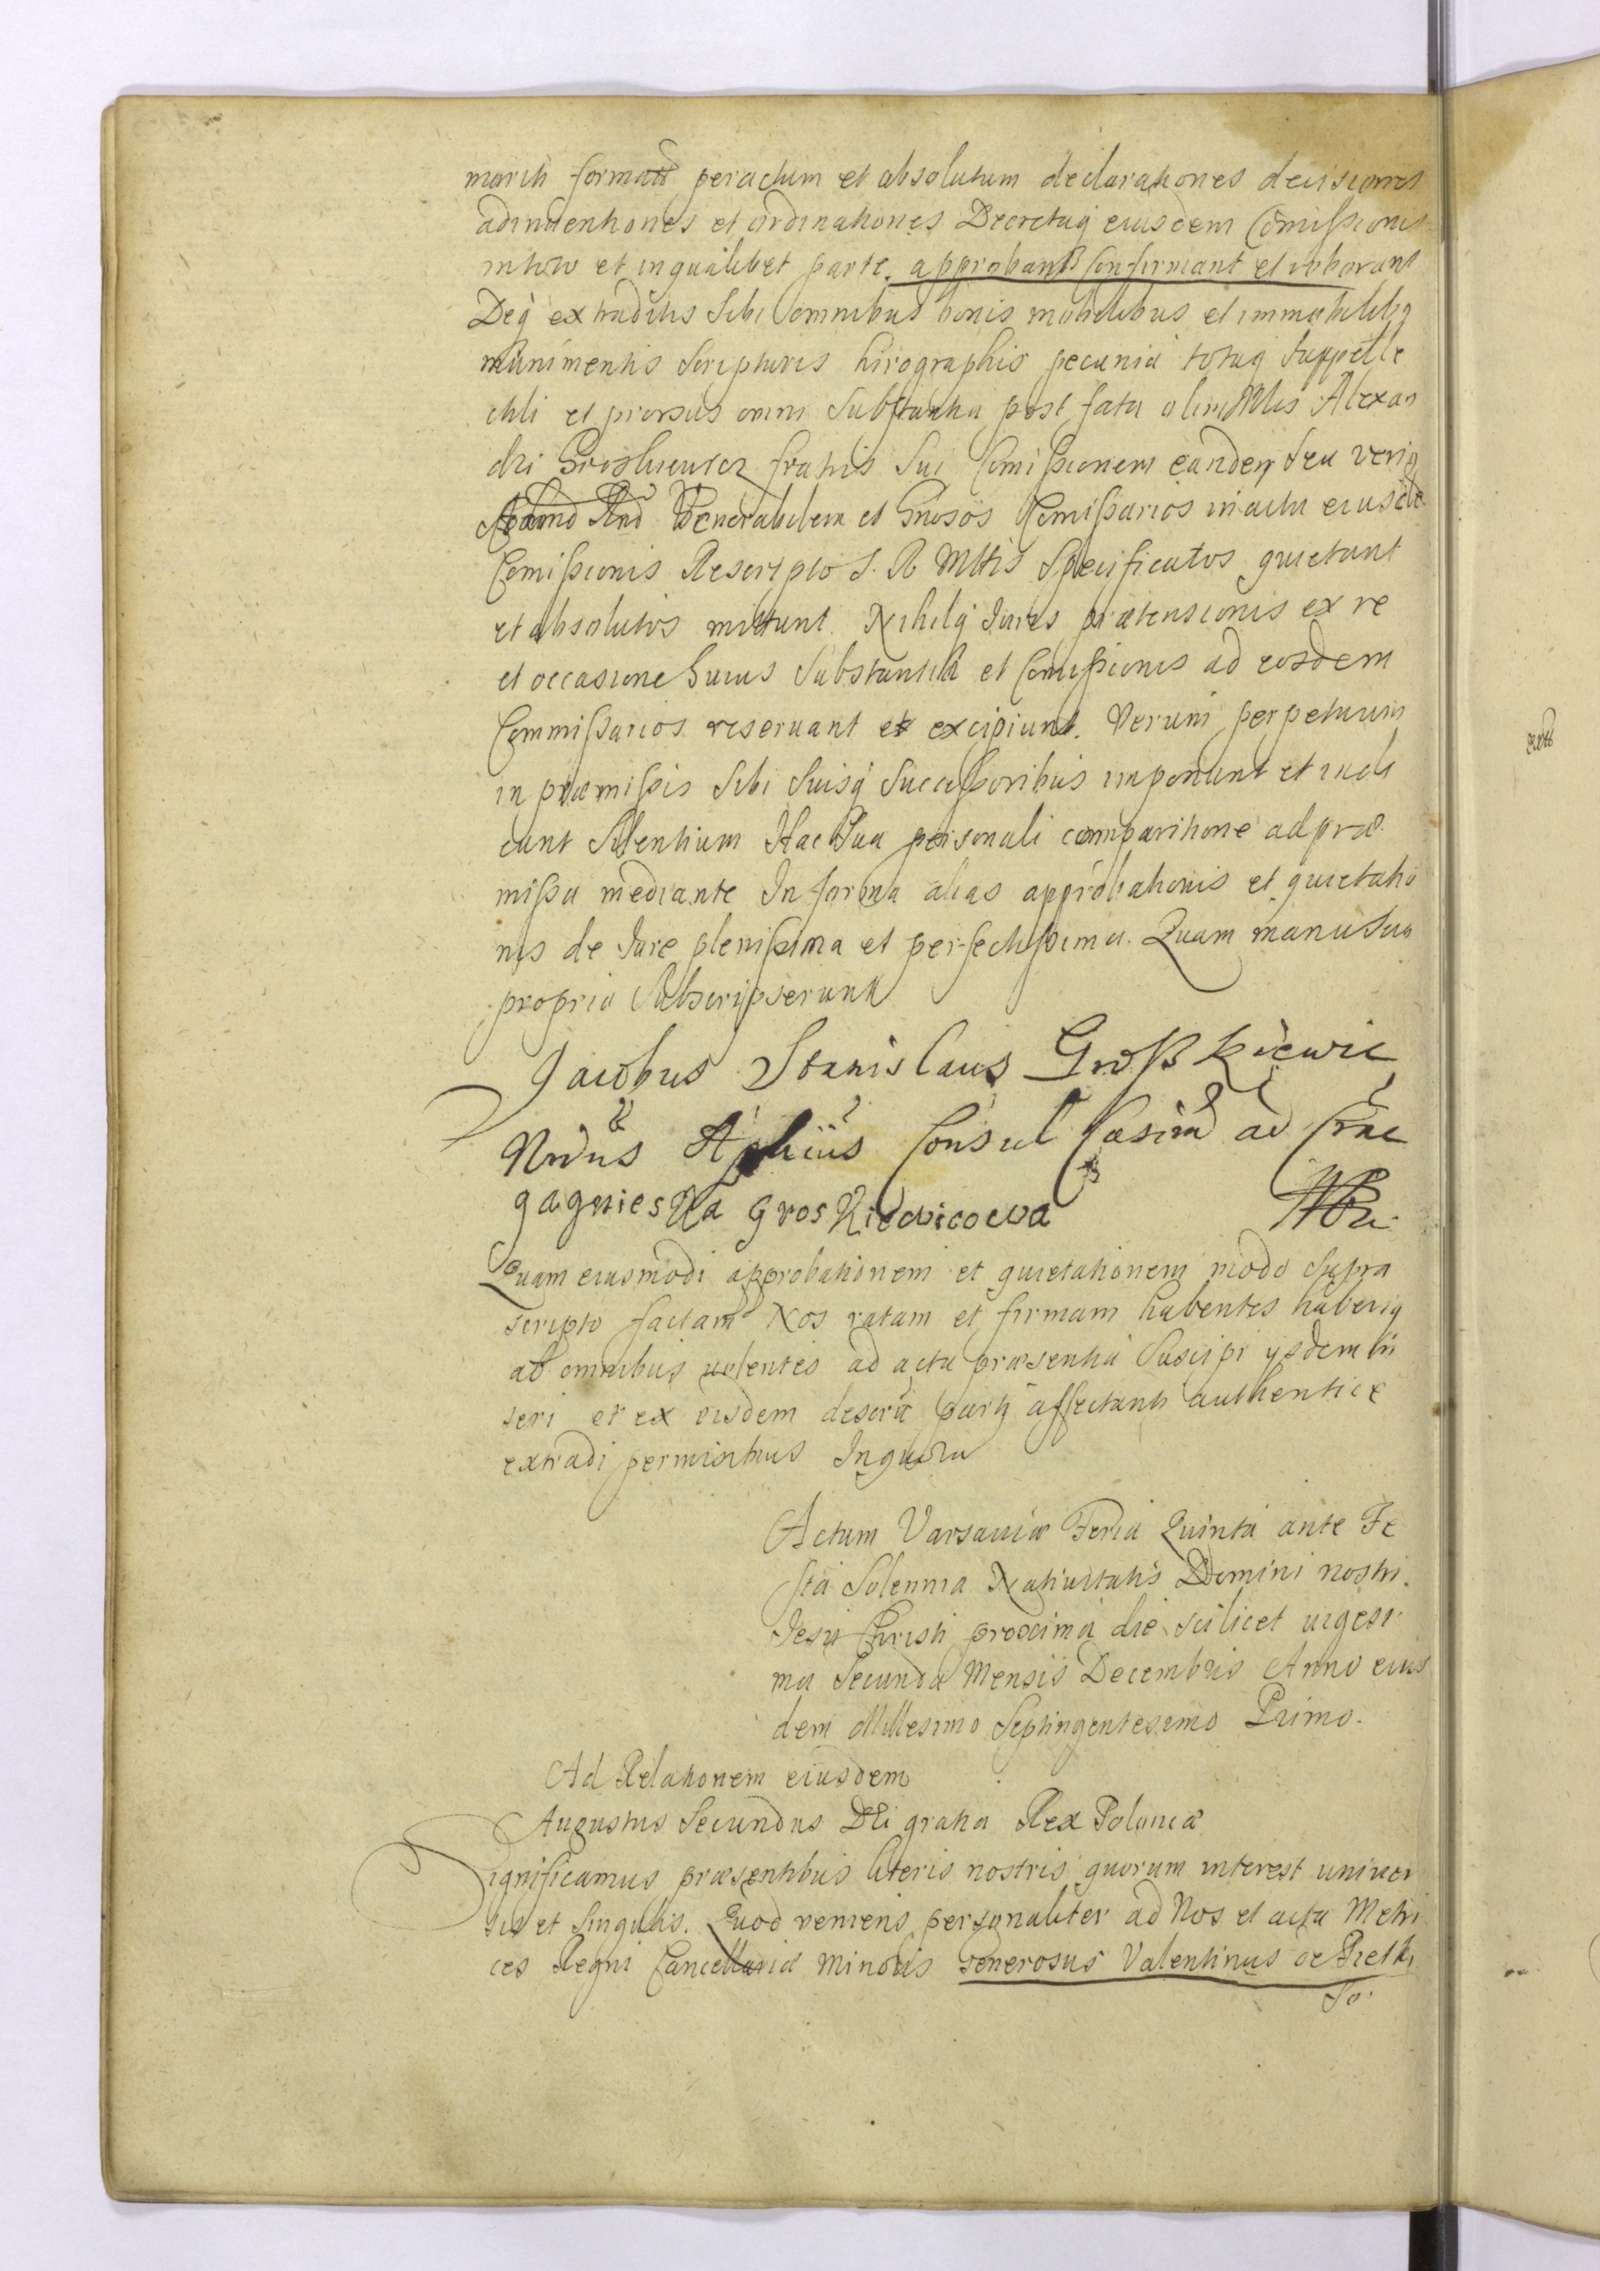 marih format peractum et absolutum declarationes decisiones
adinuentiones et ordinationes Decretaq eiusdem Comissionis
in toto et in qualibet parte. approbant Confirmant et roborant
Deq extraditis Sibi omnibus bonis mobilibus et immobilibq
munimentis Scripturis hirographis pecunia totaq Suppelle
ctili et prorsus omni Substantia post fata olim Alexan
dri Groskiewicz fratris Sui Comissionem eandem seu veriq
Venerabilem et Gnosos Comissarios in actu eiusde
Comissionis Rescripto S. R. Mttis Specificatos quietant
et absolutos mittunt. Nihilq Iuris prætensionis ex re
et occasione huius Substantiæ et Comissionis ad eosdem
Commissarios reseruant et excipiunt. Verum perpetuum
in præmissis Sibi Suisq Successoribus imponunt et indi
cunt Silentium Hac Sua personali comparitione ad præ
missa mediante In forma alias approbationis et quietatio
nis de Iure plenissima et perfectissima. Quam manu Sua
propria Subscripserunt
Jacobus Stanislaus Großkiewic
Consul Casim ad Crac
gagnieska GrosKiewicowa
Quam eiusmodi approbationem et quietationem modo Supra
scripto factam Nos ratam et firmam habentes haberiq
ab omnibus uolentes ad acta præsentia Suscipi ysdem in
seri et ex eisdem parti affectanti authentice
extradi permisimus In quoru
Actum Varsauiæ Feria Quinta ante Fe
sta Solennia Natiuitatis Domini nostri
Iesu Christi proxima die scilicet uigesi
ma Secunda Mensis Decembris Anno eius
dem Millesimo Septingentesimo Primo.
Ad Relationem eiusdem
Augustus Secundus Dei gratia Rex Poloniæ
Significamus præsentibus literis nostris quorum interest uniuer
sis et Singulis. Quod veniens personaliter ad Nos et acta Metri
ces Regni Cancellariæ Minoris Generosus Valentinus de
So.